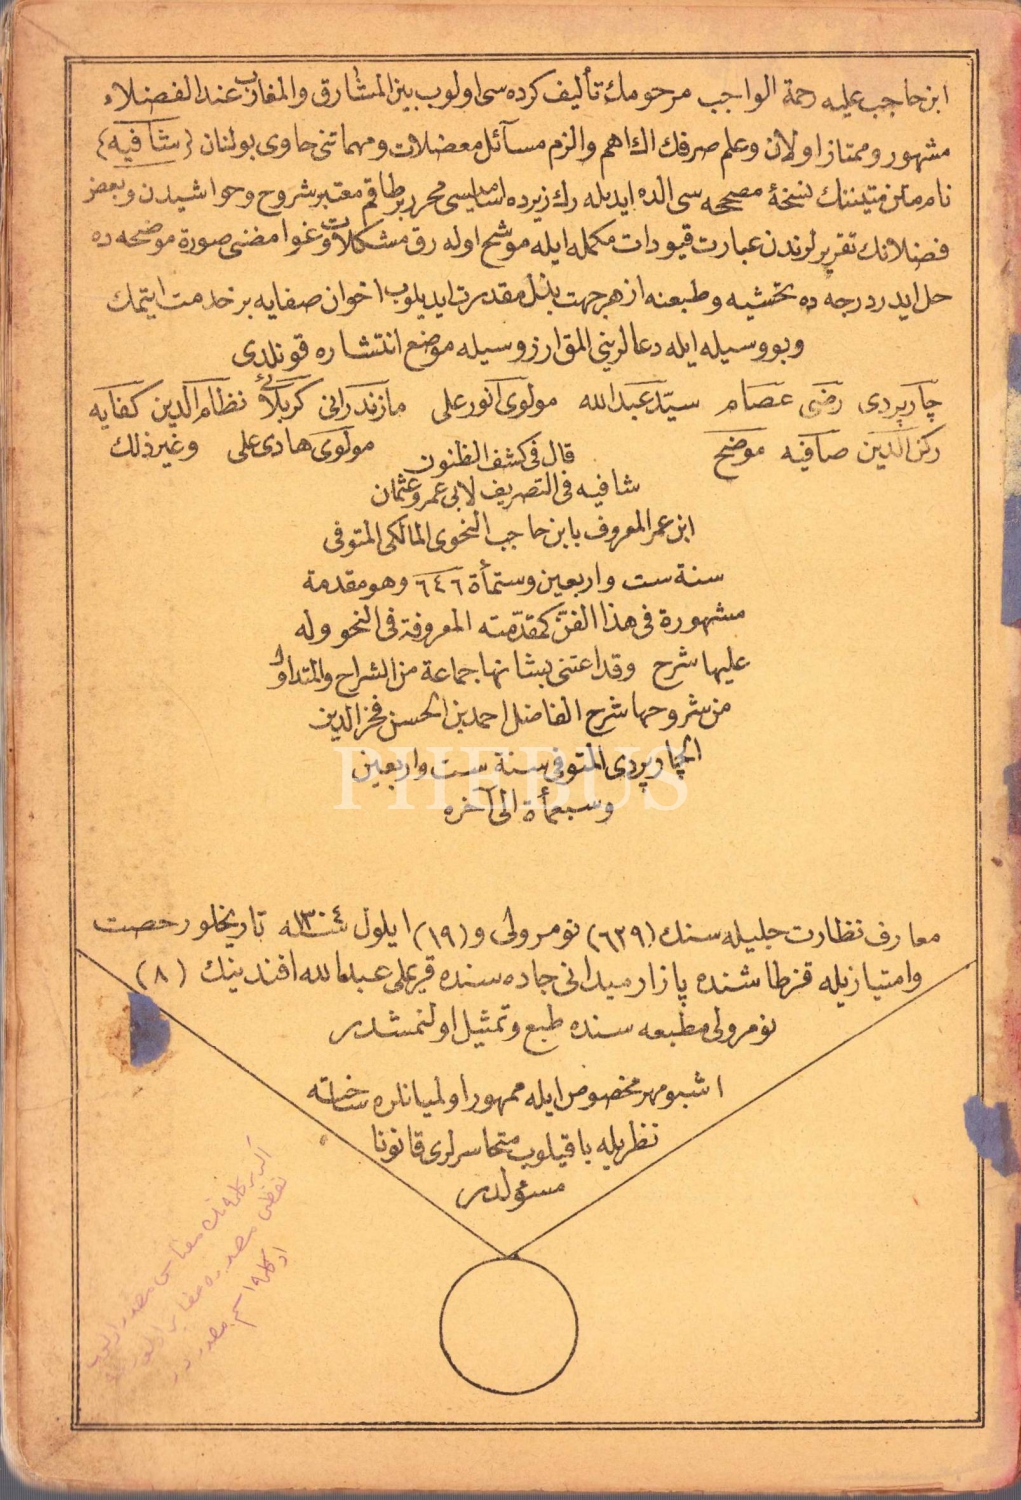 ابن حاجب عليه رحمة الواجب مرحومك تأليف كرده سی اولوب بين المشارق والمغارب عند الفضلاء
مشهور و ممتاز اولان و علم صرفك اك اهم و الزم مسآئل معضلات و مهماتنی حاوی بولنان (شافيه)
نام متن متينك نسخهٔ مصححه سی الده ايديله رك زيرده اساميسی محرر بر طاقم معتبر شروح و حواشيدن و بعض
فضلانك تقريرلرندن عبارت قيودات مكمله ايله موشح اوله رق مشكلات و غوامضنی صورة موضحه ده
حل ايدر درجه ده تحشيه و طبعنه از هر جهت بذل مقدرت ايديلوب اخوان صفايه بر خدمت ايتمك
و بو وسيله ايله دعالرينی المق ارزوسيله موضع انتشاره قونلدی
چارپردی رضی عصام سيّد عبدالله مولوی انور علی مازندرانی كربلائی نظام الدين كفايه
ركن الدين صافيه موضح مولوی هادی علی وغير ذلك
قال فی كشف الظنون
شافيه فی التصريف لابی عمرو عثمان
ابن عمر المعروف بابن حاجب النحوی المالكی المتوفی
سنة ست واربعين وستمأة ٦٤٦ وهو مقدمة
مشهورة فی هذا الفن كمقدّمته المعروفة فی النحو وله
عليها شرح وقد اعتنی بشانها جماعة من الشراح والمتداول
من شروحها شرح الفاضل احمد بن الحسن فخر الدين
الچارپردی المتوفی سنة ست واربعين
وسبعمأة الی آخره
PHEBUS
معارف نظارت جليله سنك (٦٢٩) نومرولی و (١٩) ايلول سنه ١٣٠٤ تاريخلو رخصت
و امتيازيله قزطاشنده پازار ميدانی جاده سنده قريملی عبدالله افندينك (٨)
نومرولی مطبعه سنده طبع و تمثيل اولنمشدر
اشبو مهر مخصوص ايله ممهور اولميانلره ساخته
نظريله باقيلوب متجاسرلری قانونا
مسئولدر